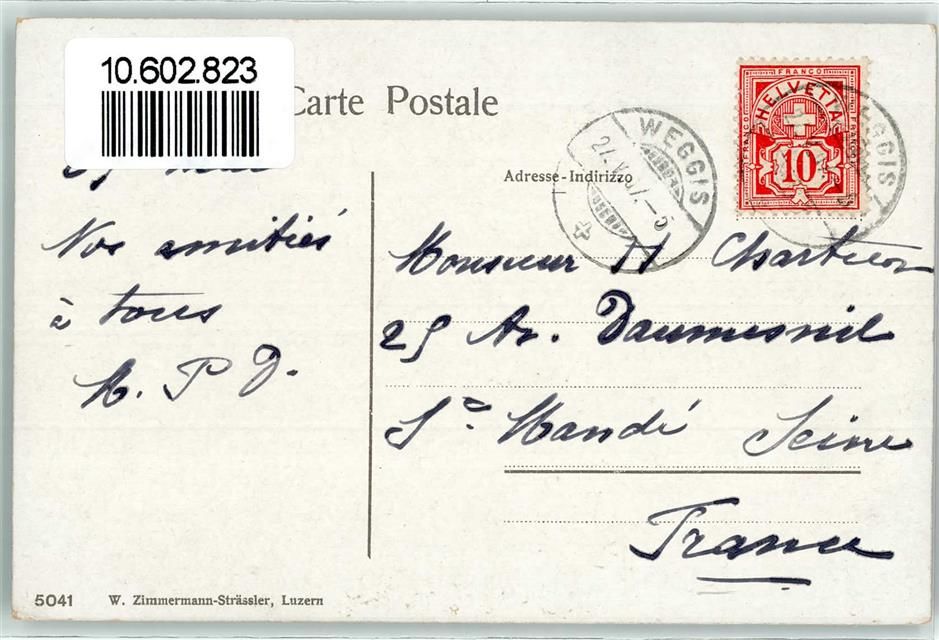 10.602.823
Carte Postale
FRANCO
HELVETIA
FRANCO
FRANCO
10
WEGGIS
WEGGIS
Adresse-Indirizzo
Nos amitiés
à tous
A. P D.
Monsieur H
25 Av. Daumesnil
St. Mandé Seine
France
5041 W. Zimmermann-Strässler, Luzern